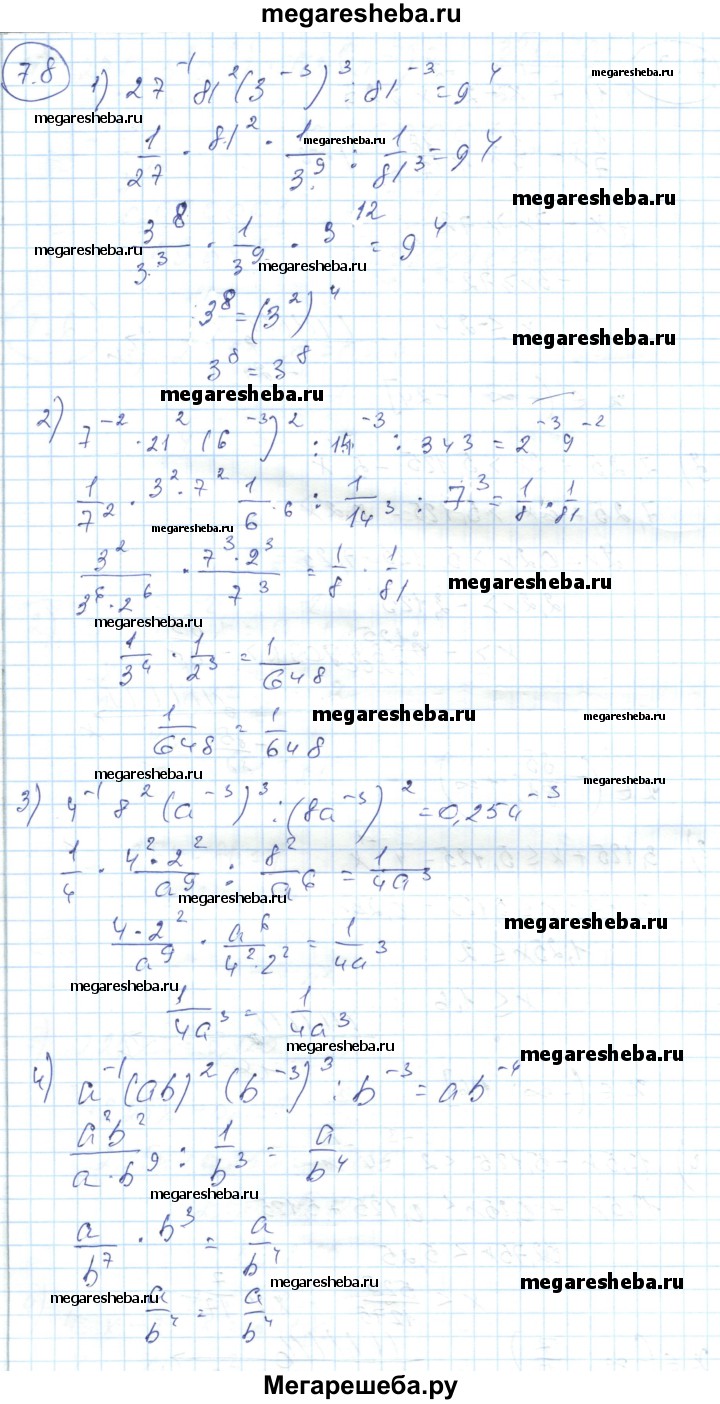 megaresheba.ru
7.8
1) 27⁻¹ 81² (3⁻³)³ : 81⁻³ = 9⁴
megaresheba.ru
megaresheba.ru
megaresheba.ru
1/27 · 81² · 1/3⁹ : 1/81³ = 9⁴
megaresheba.ru
3⁸/3³ · 1/3⁹ · 3¹² = 9⁴
megaresheba.ru
megaresheba.ru
3⁸ = (3²)⁴
megaresheba.ru
3⁸ = 3⁸
megaresheba.ru
2) 7⁻² · 21² (6⁻³)² : 14⁻³ : 343 = 2⁻³ 9⁻²
1/7² · 3² · 7² 1/6 · 6 : 1/14³ : 7³ = 1/8 · 1/81
megaresheba.ru
3²/3⁶ · 2⁶ · 7³ · 2³/7³ = 1/8 · 1/81
megaresheba.ru
megaresheba.ru
1/3⁴ · 1/2³ = 1/648
megaresheba.ru
megaresheba.ru
1/648 = 1/648
megaresheba.ru
megaresheba.ru
3) 4⁻¹ 8² (a⁻³)³ : (8a⁻³)² = 0,25a⁻³
1/4 · 4² · 2²/a⁹ : 8²/a⁶ = 1/4a³
megaresheba.ru
4 · 2²/a⁹ · a⁶/4² · 2² = 1/4a³
megaresheba.ru
megaresheba.ru
1/4a³ = 1/4a³
megaresheba.ru
megaresheba.ru
4) a⁻¹ (ab)² (b⁻³)³ : b⁻³ = ab⁻⁴
a²b²/a · b⁹ : 1/b³ = a/b⁴
megaresheba.ru
a/b⁷ · b³ = a/b⁴
megaresheba.ru
megaresheba.ru
megaresheba.ru
a/b⁴ = a/b⁴
Мегарешеба.ру